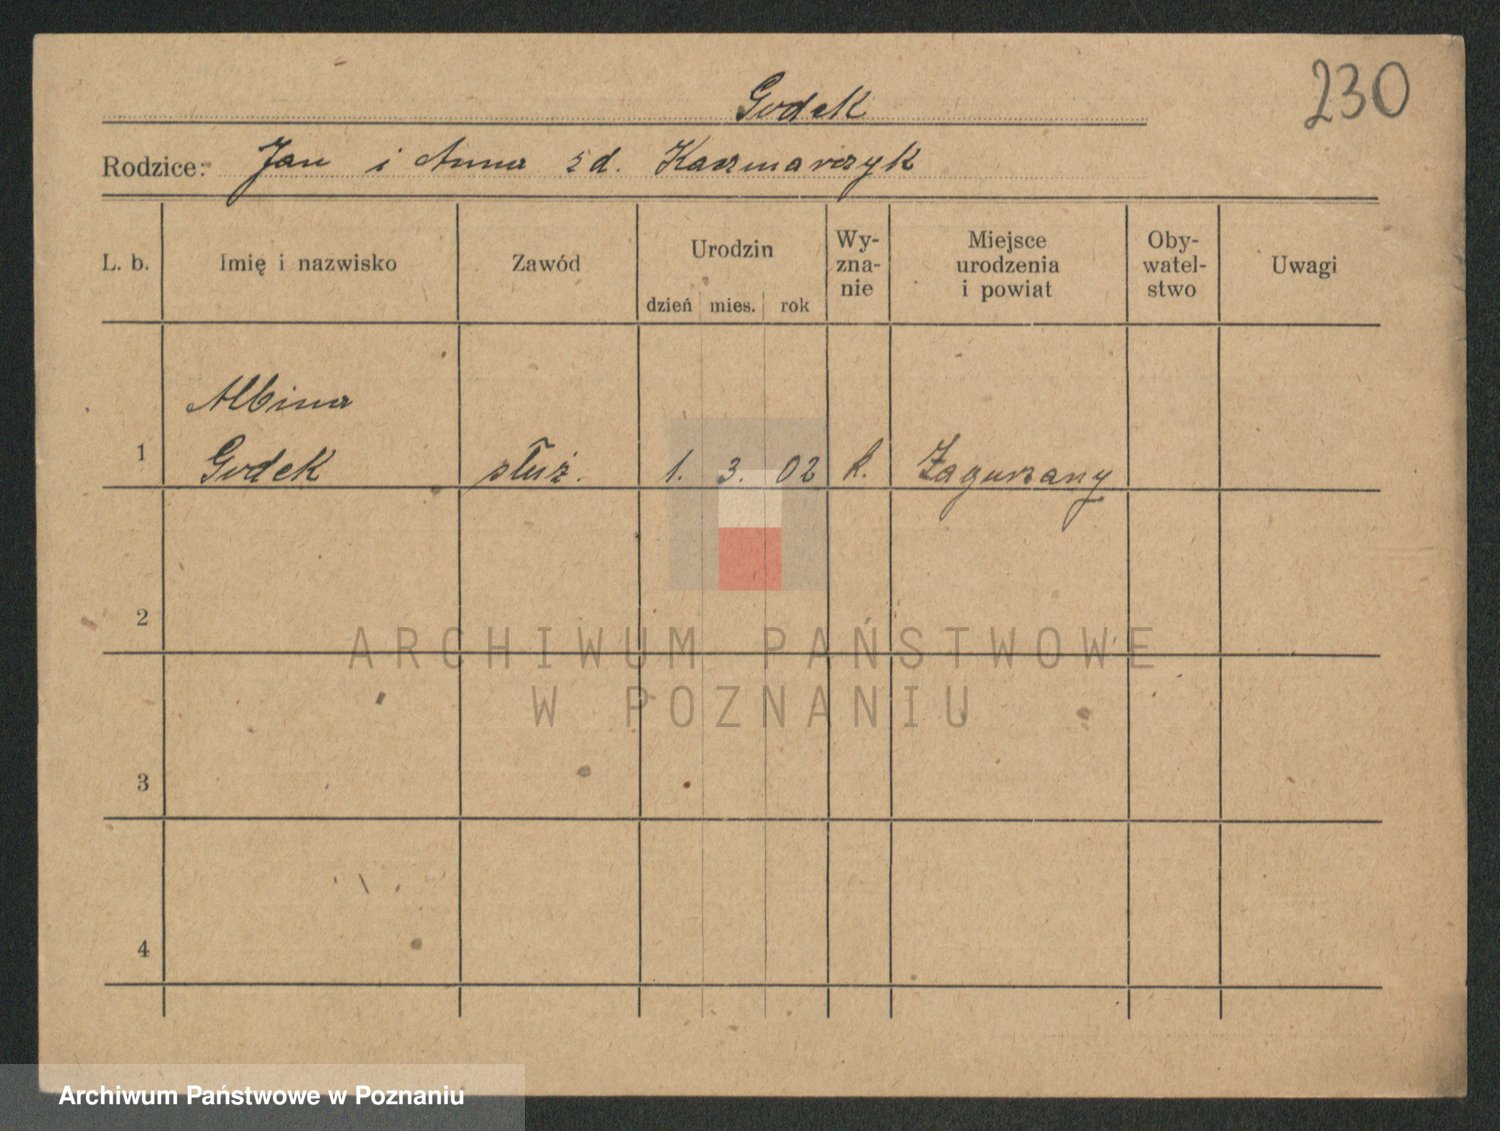 230
Godek
Rodzice: Jan i Anna zd. Kaczmarczyk
L. b. Imię i nazwisko Zawód Urodzin dzień mies. rok Wy-zna-nie Miejsce urodzenia i powiat Oby-watel-stwo Uwagi
Albina
1 Godek służ. 1. 3. 02 k. Zagorzany
2
3
4
ARCHIWUM PAŃSTWOWE
W POZNANIU
Archiwum Państwowe w Poznaniu